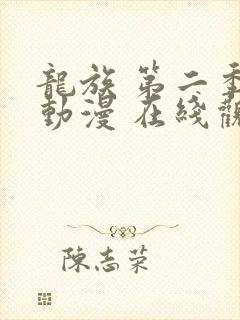 龍族 第二季
動漫 在綫觀
陳志荣